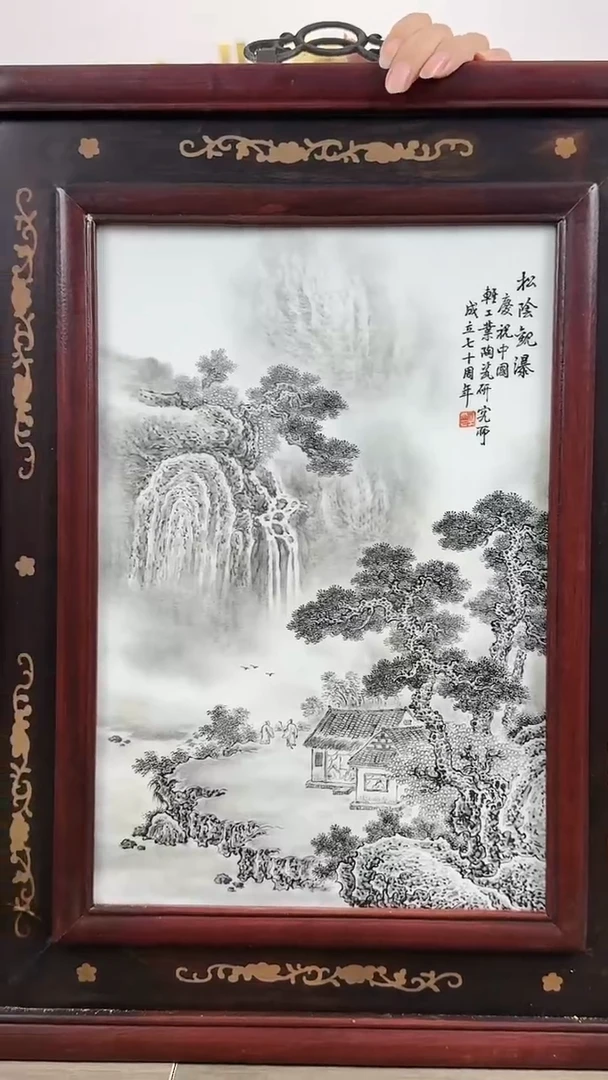 松陰觀瀑
慶祝中國
輕工業陶瓷研究所
成立七十周年